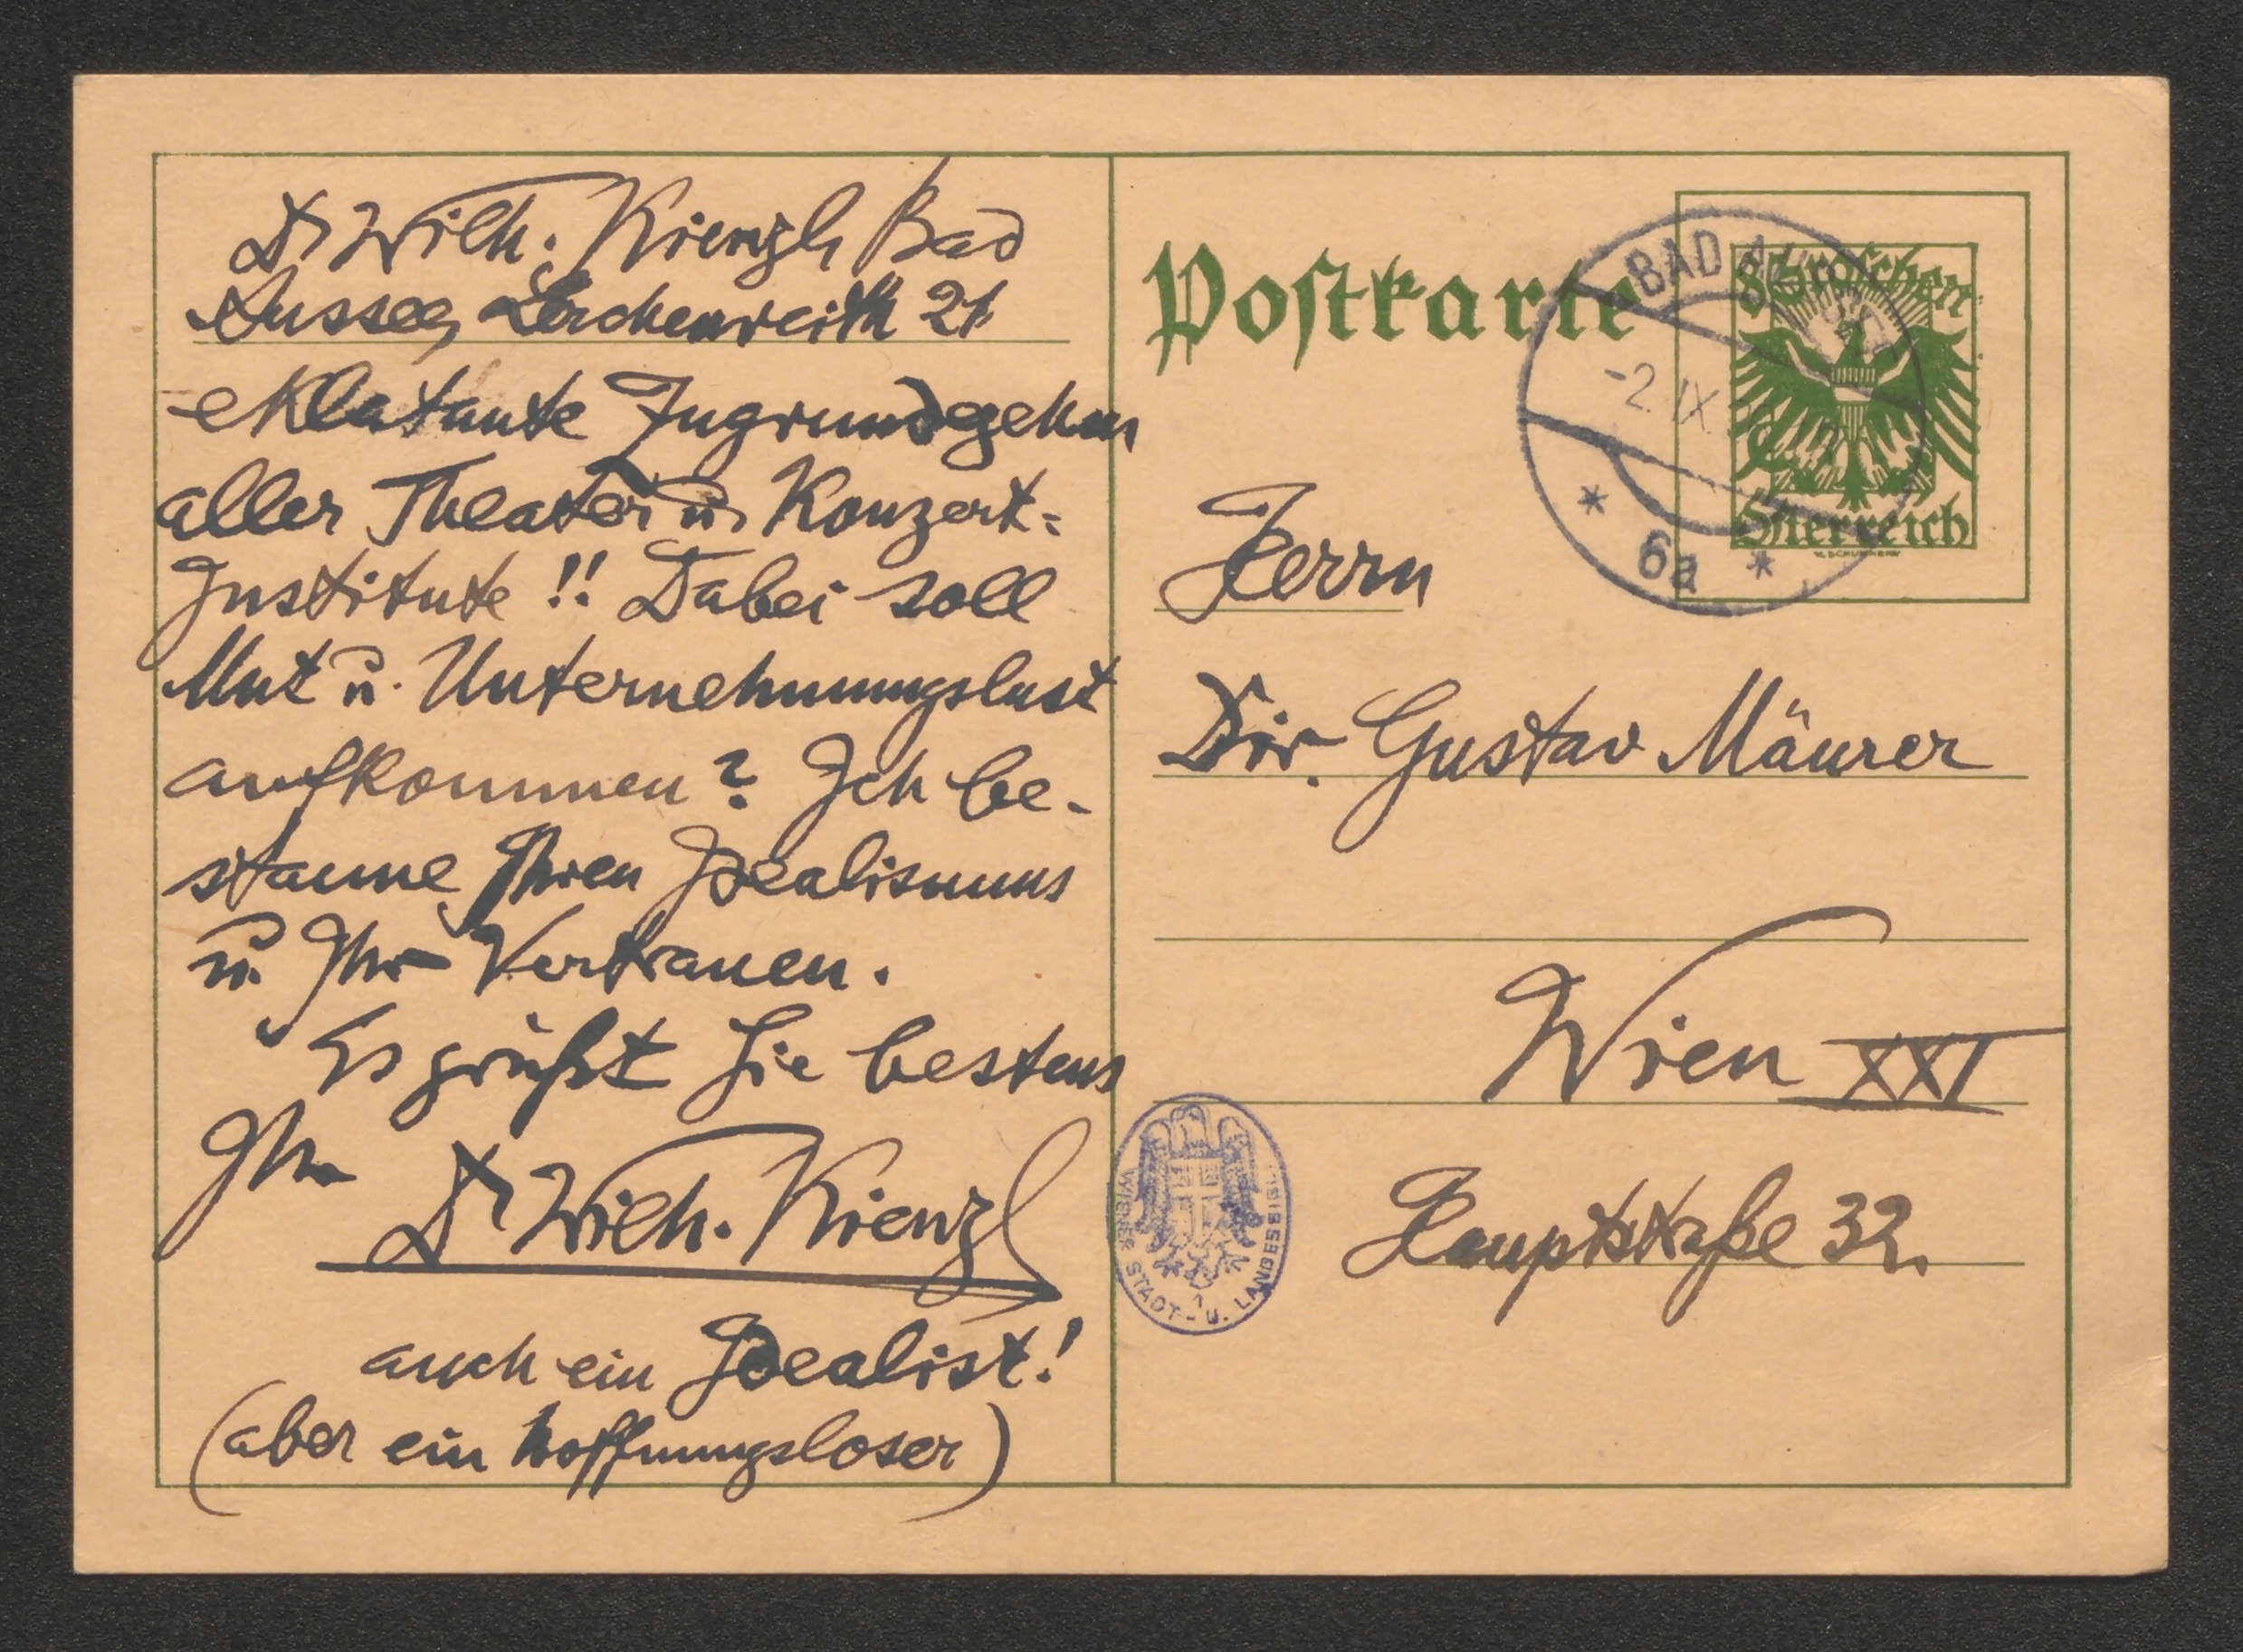 Dr Wilh. Kienzl, Bad
Aussee, Lerchenreith 21
eklatante Zugrundegehen
aller Theater u. Konzert-
Institute!! Dabei soll
Mut u. Unternehmungslust
aufkommen? Ich be-
staune Ihren Idealismus
u. Ihr Vertrauen.
Es grüßt Sie bestens
Ihr
Dr Wilh. Kienzl
auch ein Idealist!
(aber ein hoffnungsloser)
Postkarte
8 Groschen
Österreich
BAD
-2.IX.
* 6a *
Herrn
Dir. Gustav Mäurer
Wien XXI
Hauptstraße 32.
WIENER STADT- U. LANDES